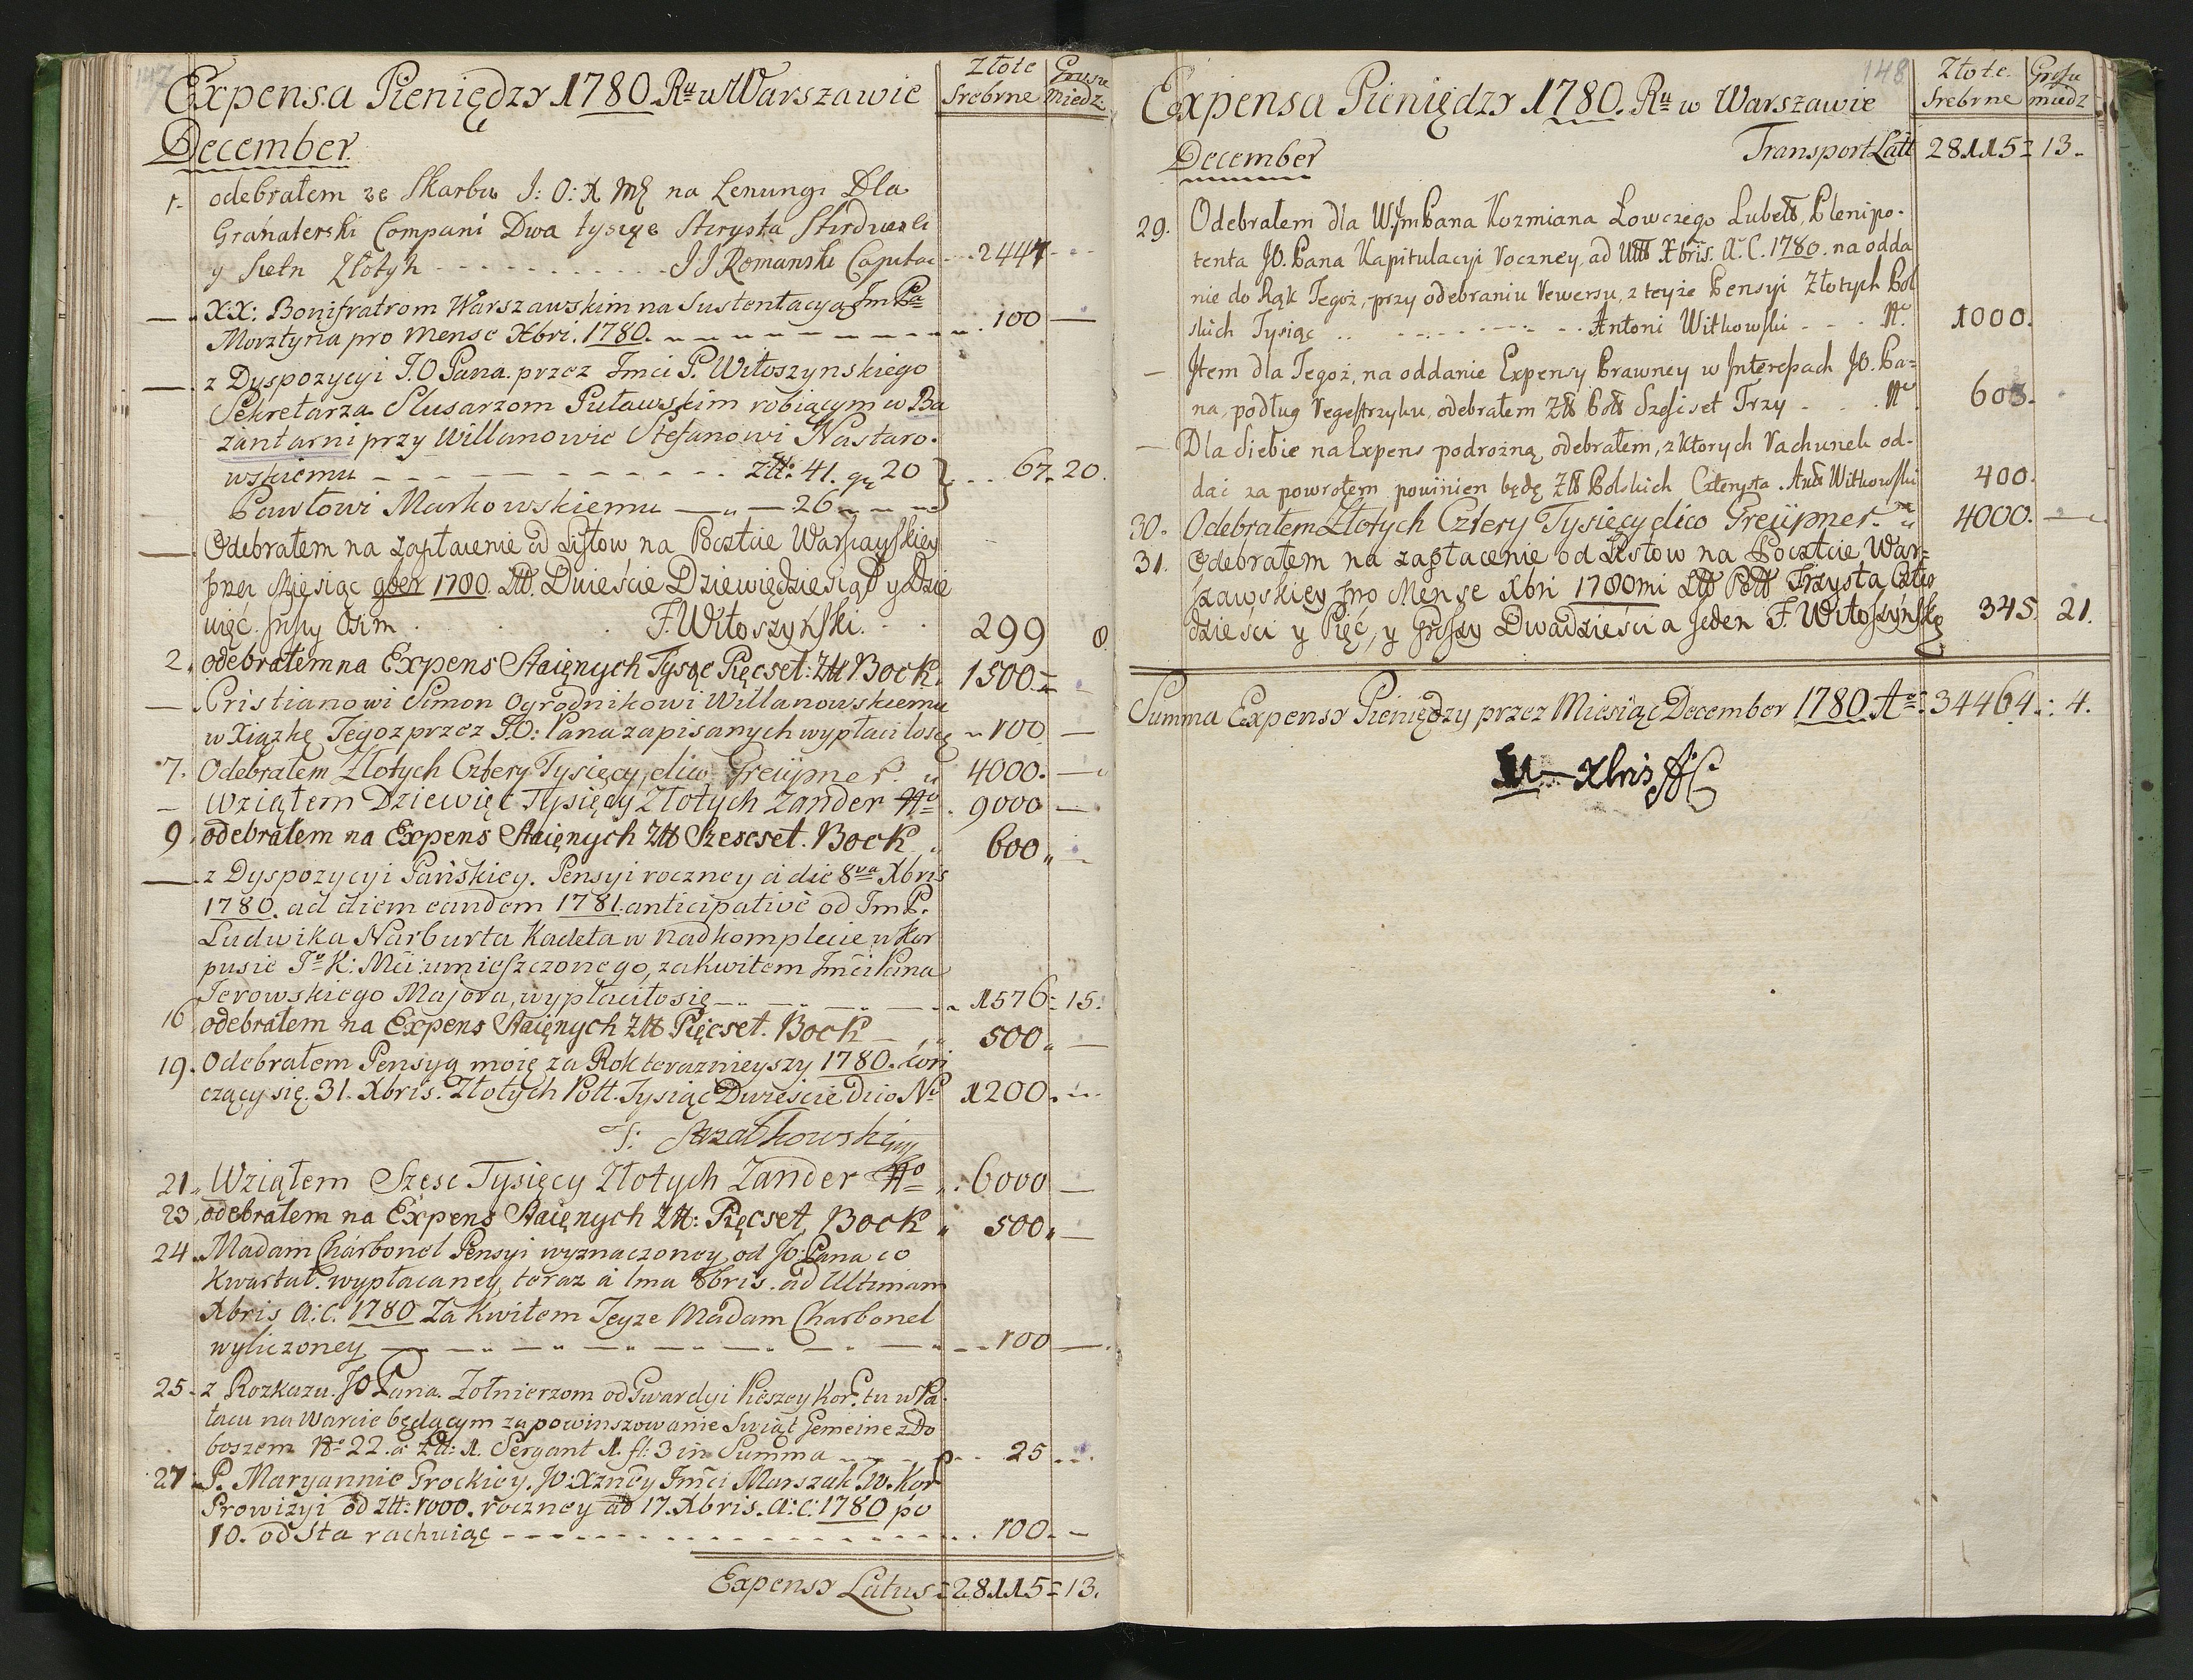 147
Expensa Pieniędzy 1780 Ru w Warszawie
Złote Grosze
Srebrne Miedz.
December.
1. odebrałem ze Skarbu J: O: X Mci na Lenungi Dla
Granaterski Compani Dwa tysiące Sterysta Stirdziesti
y Sietn Złotych - - - J J Romanski Capitac - - 2447 - -
— XX: Bonifratrom Warszawskim na Sustentacyą Jm Pa
Morztyna pro mense Xbri. 1780. - - - 100 —
— z Dyspozycyi J.O Pana. przez Jmci P. Witoszynskiego
Sekretarza Slusarzom Puławskim robiącym w Ba
zantarni przy Willanowie Stefanowi Nastaro.
wskiemu - - - Złt: 41. gr 20 } . . 67. 20.
Pawłowi Markowskiemu — „ — 26 „
— Odebrałem na zapłacenie od Listow na Poczcie Warszawskiey
przez Miesiąc 9ber 1780. Złt. Dwieście Dziewięćdziesiąt y Dzie
więć. groszy Osim . . F. Witoszyński. . . 299 8.
2. odebrałem na Expens Staięnych Tysąc Pięcset: Złt Bock. 1500 = „
— Cristianowi Simon Ogrodnikowi Willanowskiemu
w Xiążkę Tegoz przez J.O: Pana zapisanych wypłaciłosię „ 100 —
7. Odebrałem Złotych Cztery Tysięcy, dico Freüpner. „ 4000. —
— Wziąłem Dziewięć Tysięcy Złotych Zander No . 9000 —
9. odebrałem na Expens Staięnych Złt Szescset. Bock „ 600 „ —
— z Dyspozycyi Pańskiey. Pensyi roczney a die 8va Xbris
1780. ad diem eandem 1781. anticipativè od Jm P.
Ludwika Narburta Kadeta w nadkomplecie w Kor
pusie Jo K: Mci umieszczonego, za Kwitem Jmci Pana
Jerowskiego Majora, wypłaciłosię — „ — „ 1576 = 15.
16 odebrałem na Expens Staięnych Złt Pięcset. Bock — „ 500 „ —
19. Odebrałem Pensyą moię za Rok terazneyszy 1780. koń
czący się. 31. Xbris. Złotych Poll. Tysiąc Dwieście Dico No 1200. „
J: Strzałkowski
21. Wziąłem Szesc Tysięcy Złotych Zander No . 6000 —
23. odebrałem na Expens Staięnych Złt: Pięcset, Bock „ 500 „ —
24. Madam Charbonel Pensyi wyznaczoney, od JO: Pana co
Kwartał. wypłacaney, teraz a 1ma 8bris. ad Ultimam
Xbris a: c: 1780 Za Kwitem Teyze Madam Charbonel
wyliczoney — „ — „ — 100 —.
25. z Rozkazu. JO Pana. Zołnierzom od Gwardyi Pieszey Kor. tu w Pa.
łacu na Warcie będącym za powinszowanie Swiąt Gemeine z Do
boszem No 22. à Złt: 1. Sergant 1. fl: 3 in Summa - - - 25 . .
27. P. Maryannie Grockiey. JO: Xzney Jmci Marszałk. W. Kor
Prowizyi od Złt: 1000. roczney ad 17. Xbris. a: c: 1780 po
10. od Sta rachuiąc - - - 100. -
Expensy Latus = 28115 = 13.
148
Expensa Pieniędzy 1780. Ru w Warszawie
Złote. Grosze
Srebrne miedz
December
Transport Latt 28115 = 13.
29. Odebrałem dla W. Jm Pana Kozmiana Łowczego Lubels, Plenipo.
tenta JO. Pana Kapitulacyi Roczney, ad Ult Xbris. A. C. 1780. na odda
nie do Rąk Tegoż, przy odebraniu Rewersu, z teyże Pensyi Złotych Pol
skich Tysiąc .. - - - Antoni Witkowski - - - No. 1000.
— Jtem dla Tegoż, na oddanie Expensy Prawney w Interessach JO. Pa=
na, podług Regestrzyku, odebrałem Złt Polt Szesćset Trzy - . . No 603.
— Dla Siebie na Expens podrożną odebrałem, z ktorych Rachunek od-
dać za powrotem powinien będę Złt Polskich Czterysta. Ant Witkowski 400.
30. Odebrałem Złotych Cztery Tysięcy dico Freüpner. „ 4000. —
31. Odebrałem na zapłacenie od Listow na Poczcie War=
szawskiey pro Mense Xbri 1780mi Złt Polt Trzysta Czter
dzieści y Pięć, y groszy Dwadzieścia jeden F. Witoszyńskę 345. 21.
Summa Expensy Pieniędzy przez Miesiąc December 1780. Ao. 34464 : 4.
Xbris AC